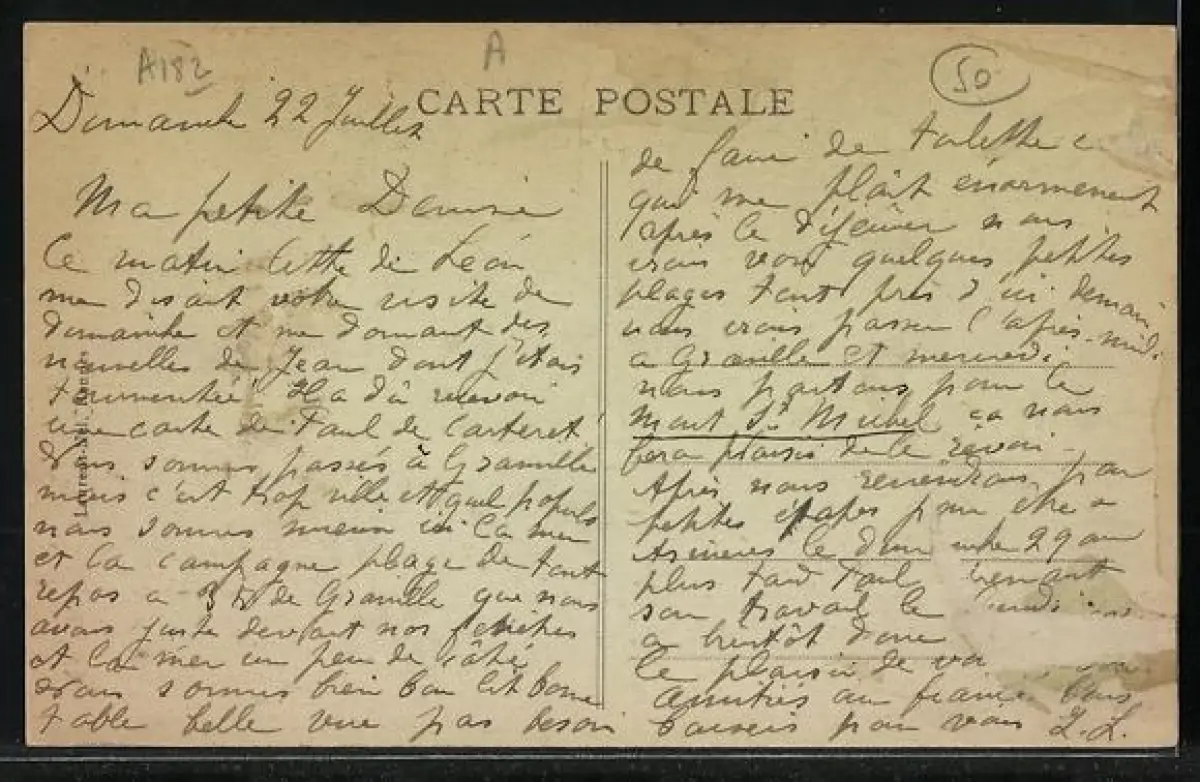 A182
A
50
CARTE POSTALE
Dimanche 22 Juillet
Ma petite Denise
Ce matin lettre de Léon
me disant votre visite de
dimanche et me donnant des
nouvelles de Jean dont j'étais
tourmentée Il a dû recevoir
une carte de Paul de Carteret
Nous sommes passés à Granville
mais c'est trop ville et quel populo
nous sommes mieux ici la mer
et la campagne plage de tout
repos a 3 de Granville que nous
avons juste devant nos fenêtres
et la mer un peu de côté
Nous sommes bien bon lit bonne
table belle vue pas besoin
de faire de toilette ce
qui me plaît énormement
après le déjeuner nous
irons voir quelques petites
plages tout près d'ici demain
nous irons passer l'après-midi
a Granville et mercredi
nous partons pour le
Mont St Michel ça nous
fera plaisir de le revoir
Après nous reviendrons par
petites étapes pour être a
Asnières le dimanche 29 au
plus tard Paul
son travail le lundi
a bientôt donc
le plaisir de
amitiés au bons
baisers pour vous L.L.